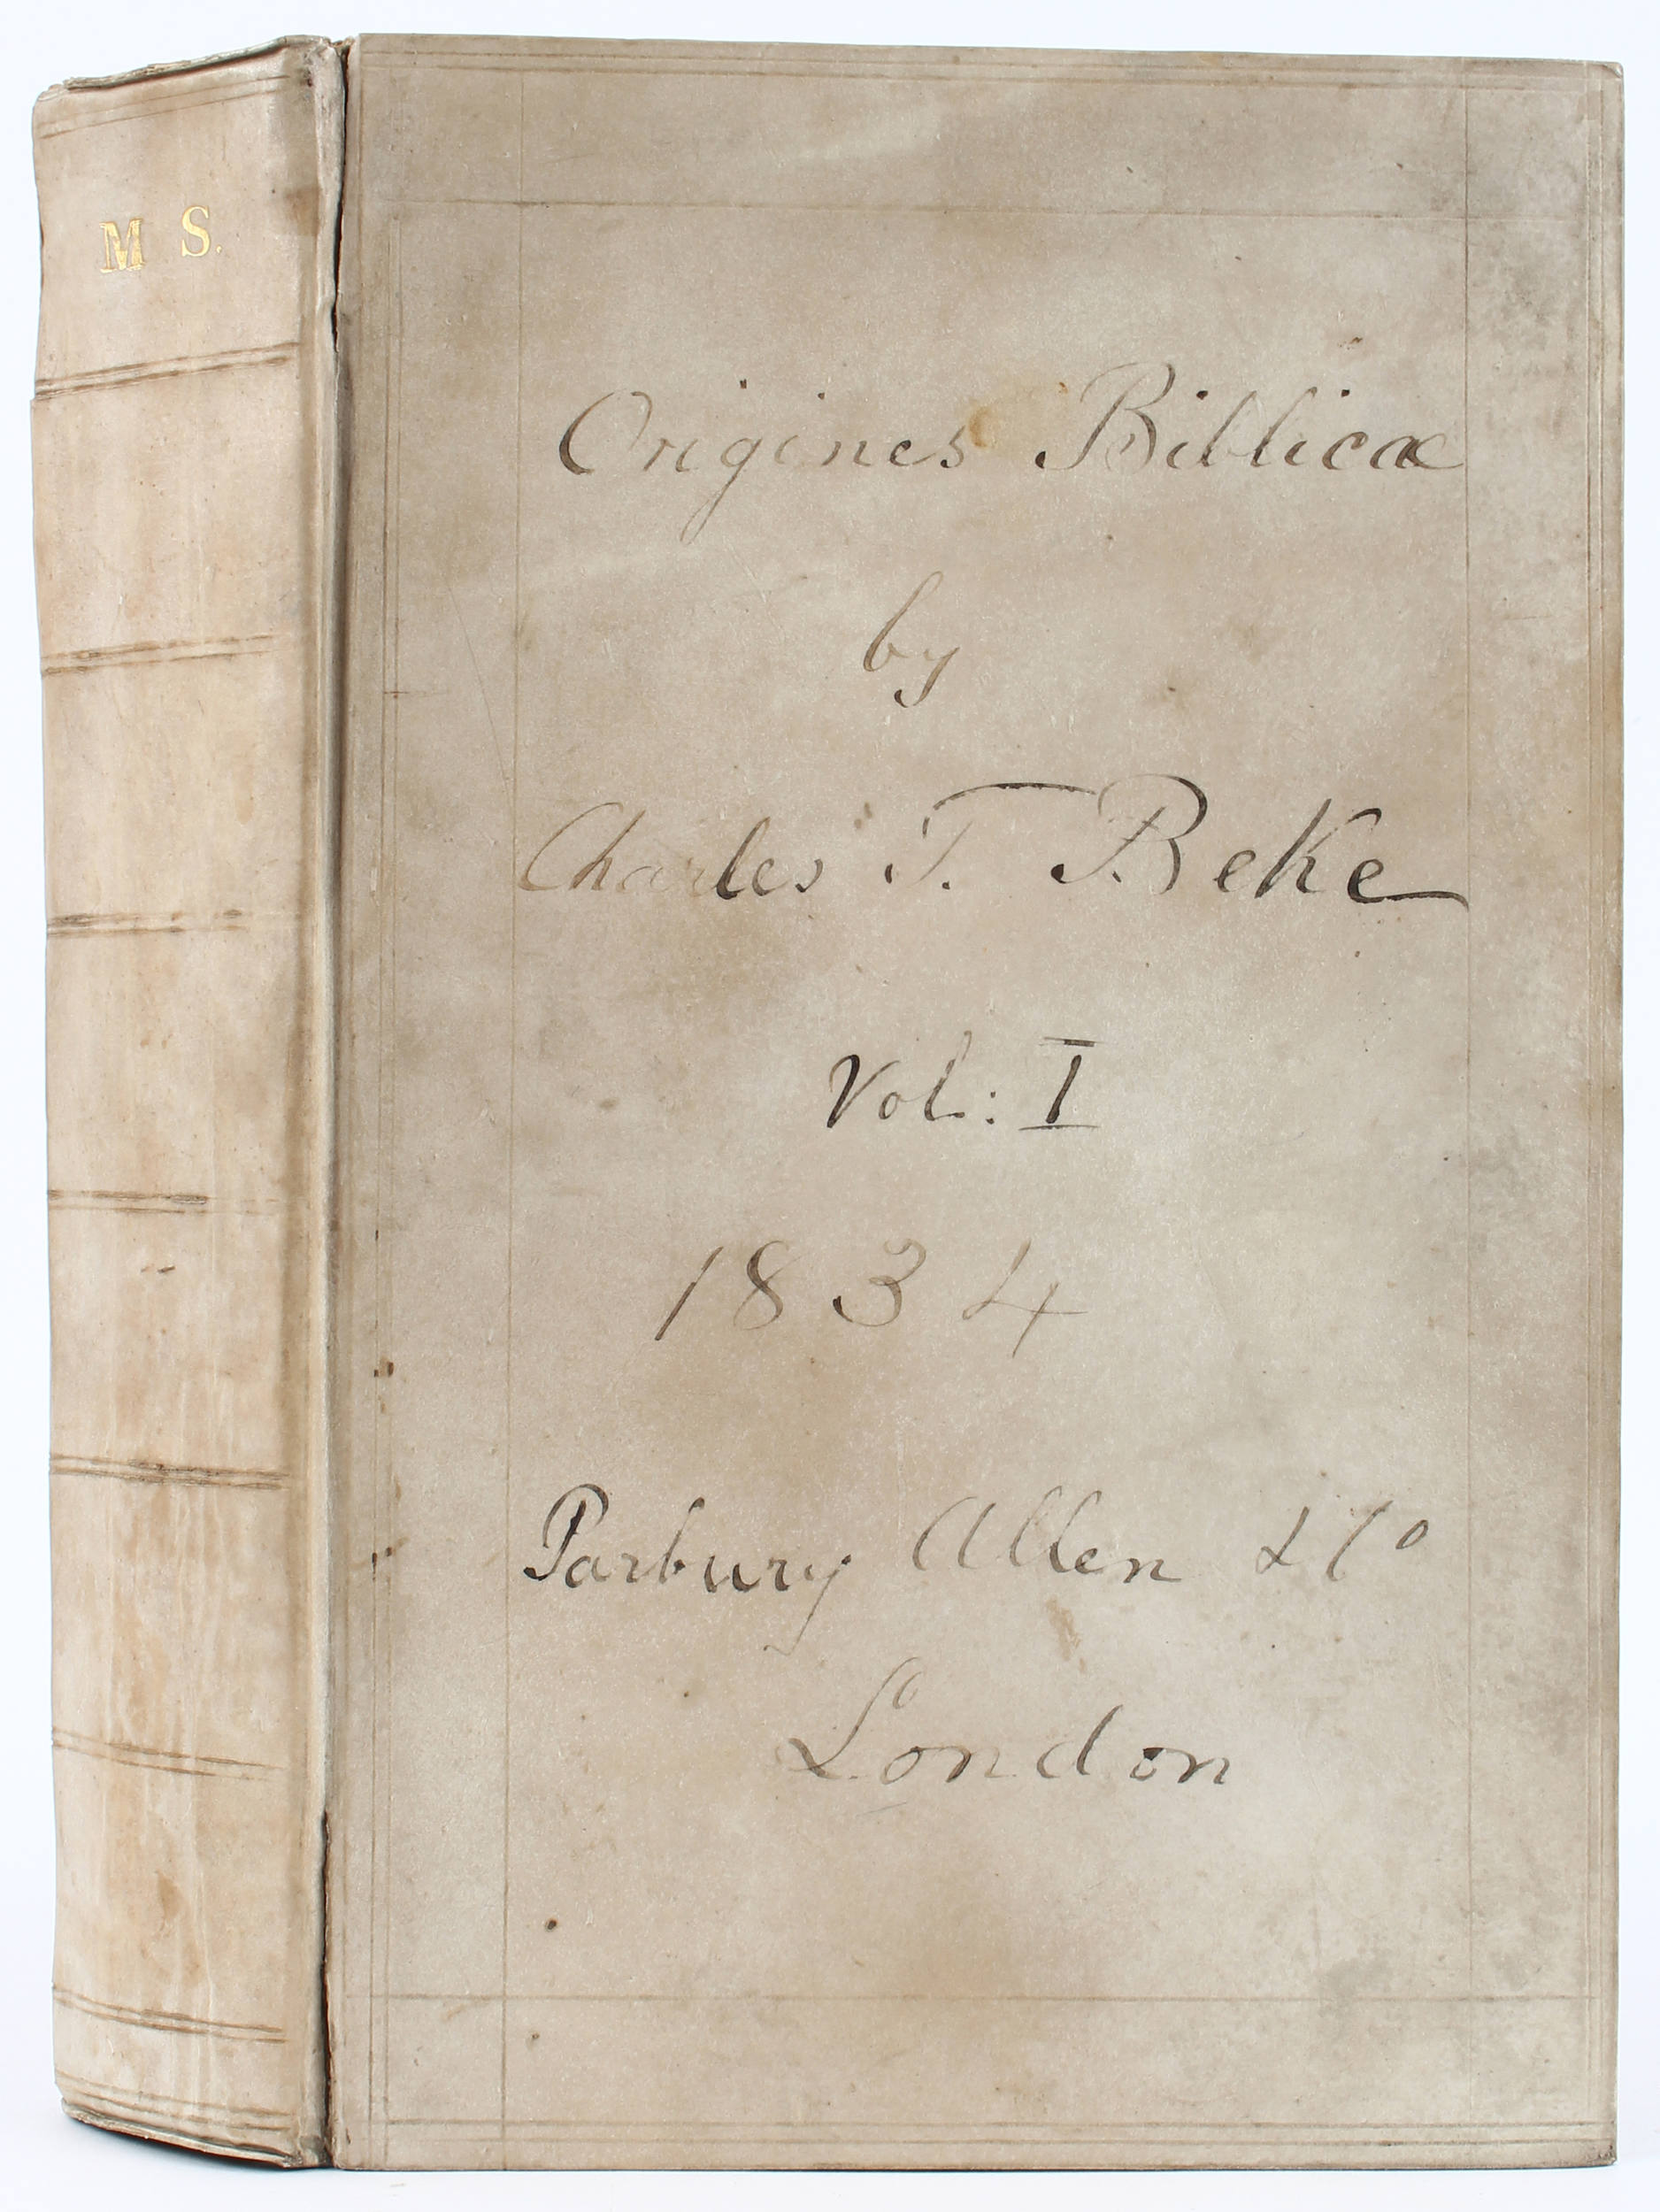 M S.
Origines Biblicæ
by
Charles T. Beke
Vol: I
1834
Parbury Allen & Co
London